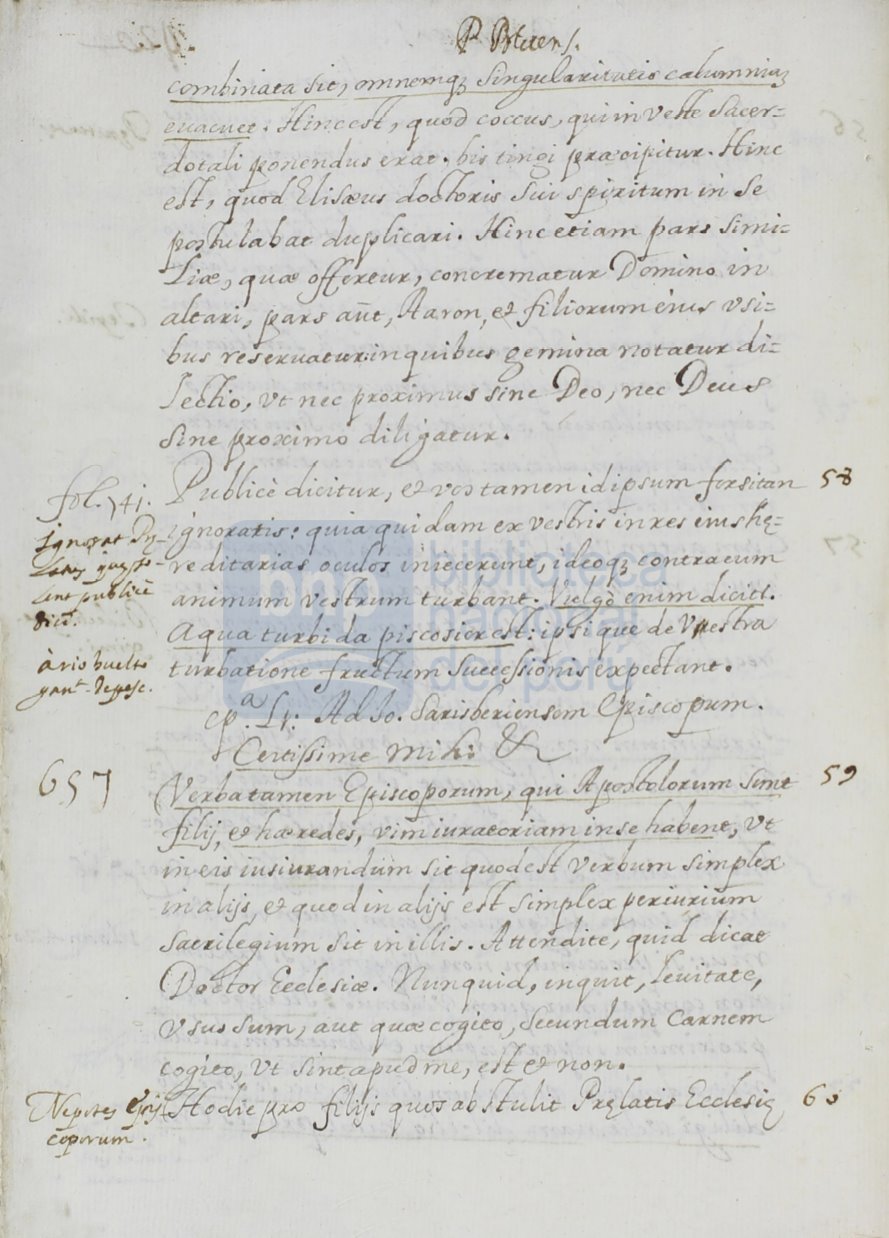 P. Blesens.
combinata sit, omnemq; singularitatis calumniaȝ
euacuet. Hinc est, quod coccus, qui in veste sacer=
dotali ponendus erat. bis tingi præcipitur. Hinc
est, quod Elisæus doctoris sui spiritum in se
postulabat duplicari. Hinc etiam pars simi=
liæ, quæ offertur, concrematur Domino in
altari, pars aūt, Aaron, et filiorum eius vsi=
bus reseruatur: in quibus gemina notatur di=
lectio, vt nec proximus sine Deo, nec Deus
sine proximo diligatur.
fol. 741.
Publicè dicitur, et vos tamen id ipsum forsitan 58
ignoratis: quia quidam ex vestris in res eius hę=
reditarias oculos iniecerunt, ideoq; contra eum
animum vestrum turbant. Vulgò enim dicitr.
Aqua turbida piscosior est: ipsi que de vestra
turbatione fructum successionis expectant.
publicè
dicit.
à rio buelto
epª. 51: Ad Io. Sarisberiensem Episcopum.
Certissime mihi &
657
Verba tamen Episcoporum, qui Apostolorum sunt 59
filij, et hæredes, vim iuratoriam in se habent, vt
in eis iusiurandum sit quod est verbum simplex
in alijs, et quod in alijs est simplex periurium
sacrilegium sit in illis. Attendite, quid dicat
Doctor Ecclesiæ. Nunquid, inquit, leuitate,
vsus sum, aut quæ cogito, secundum carnem
cogito, vt sint apud me, est et non.
Nepotes Epis
coporum.
Hodie pro filijs quos abstulit Pręlatis Ecclesię 60
bnp biblioteca
nacional
del perú